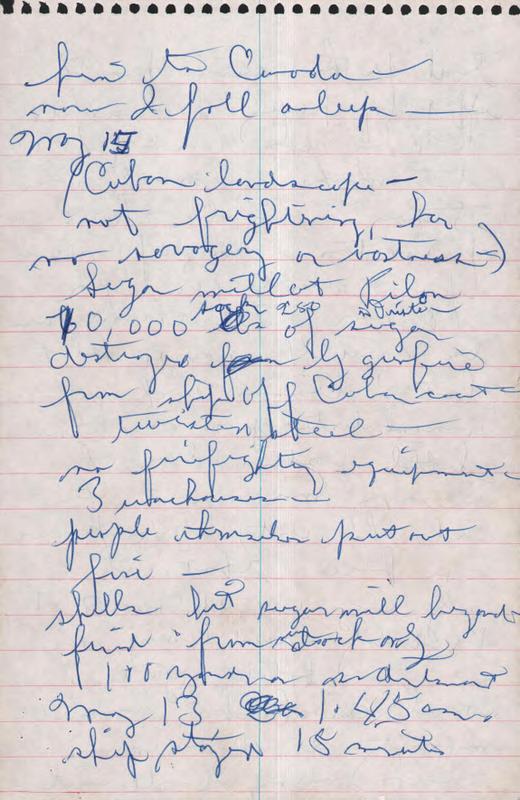 to Canada —
now I fall asleep —
May 15
(Cuban landscape —
not frightning, has
no savagery or vastness —)
Sugar mill at Pilon
sacks 250 in Oriente
10,000 lbs of sugar
destroyed by gunfire
from ship off Cuban coast —
twisted steel —
no firefighting equipment —
3 warehouses —
people themselves put out
fire —
shells hit sugar mill beyond
fired from stock only
100 yards
May 13 1.45 am
ship stayed 15 minutes